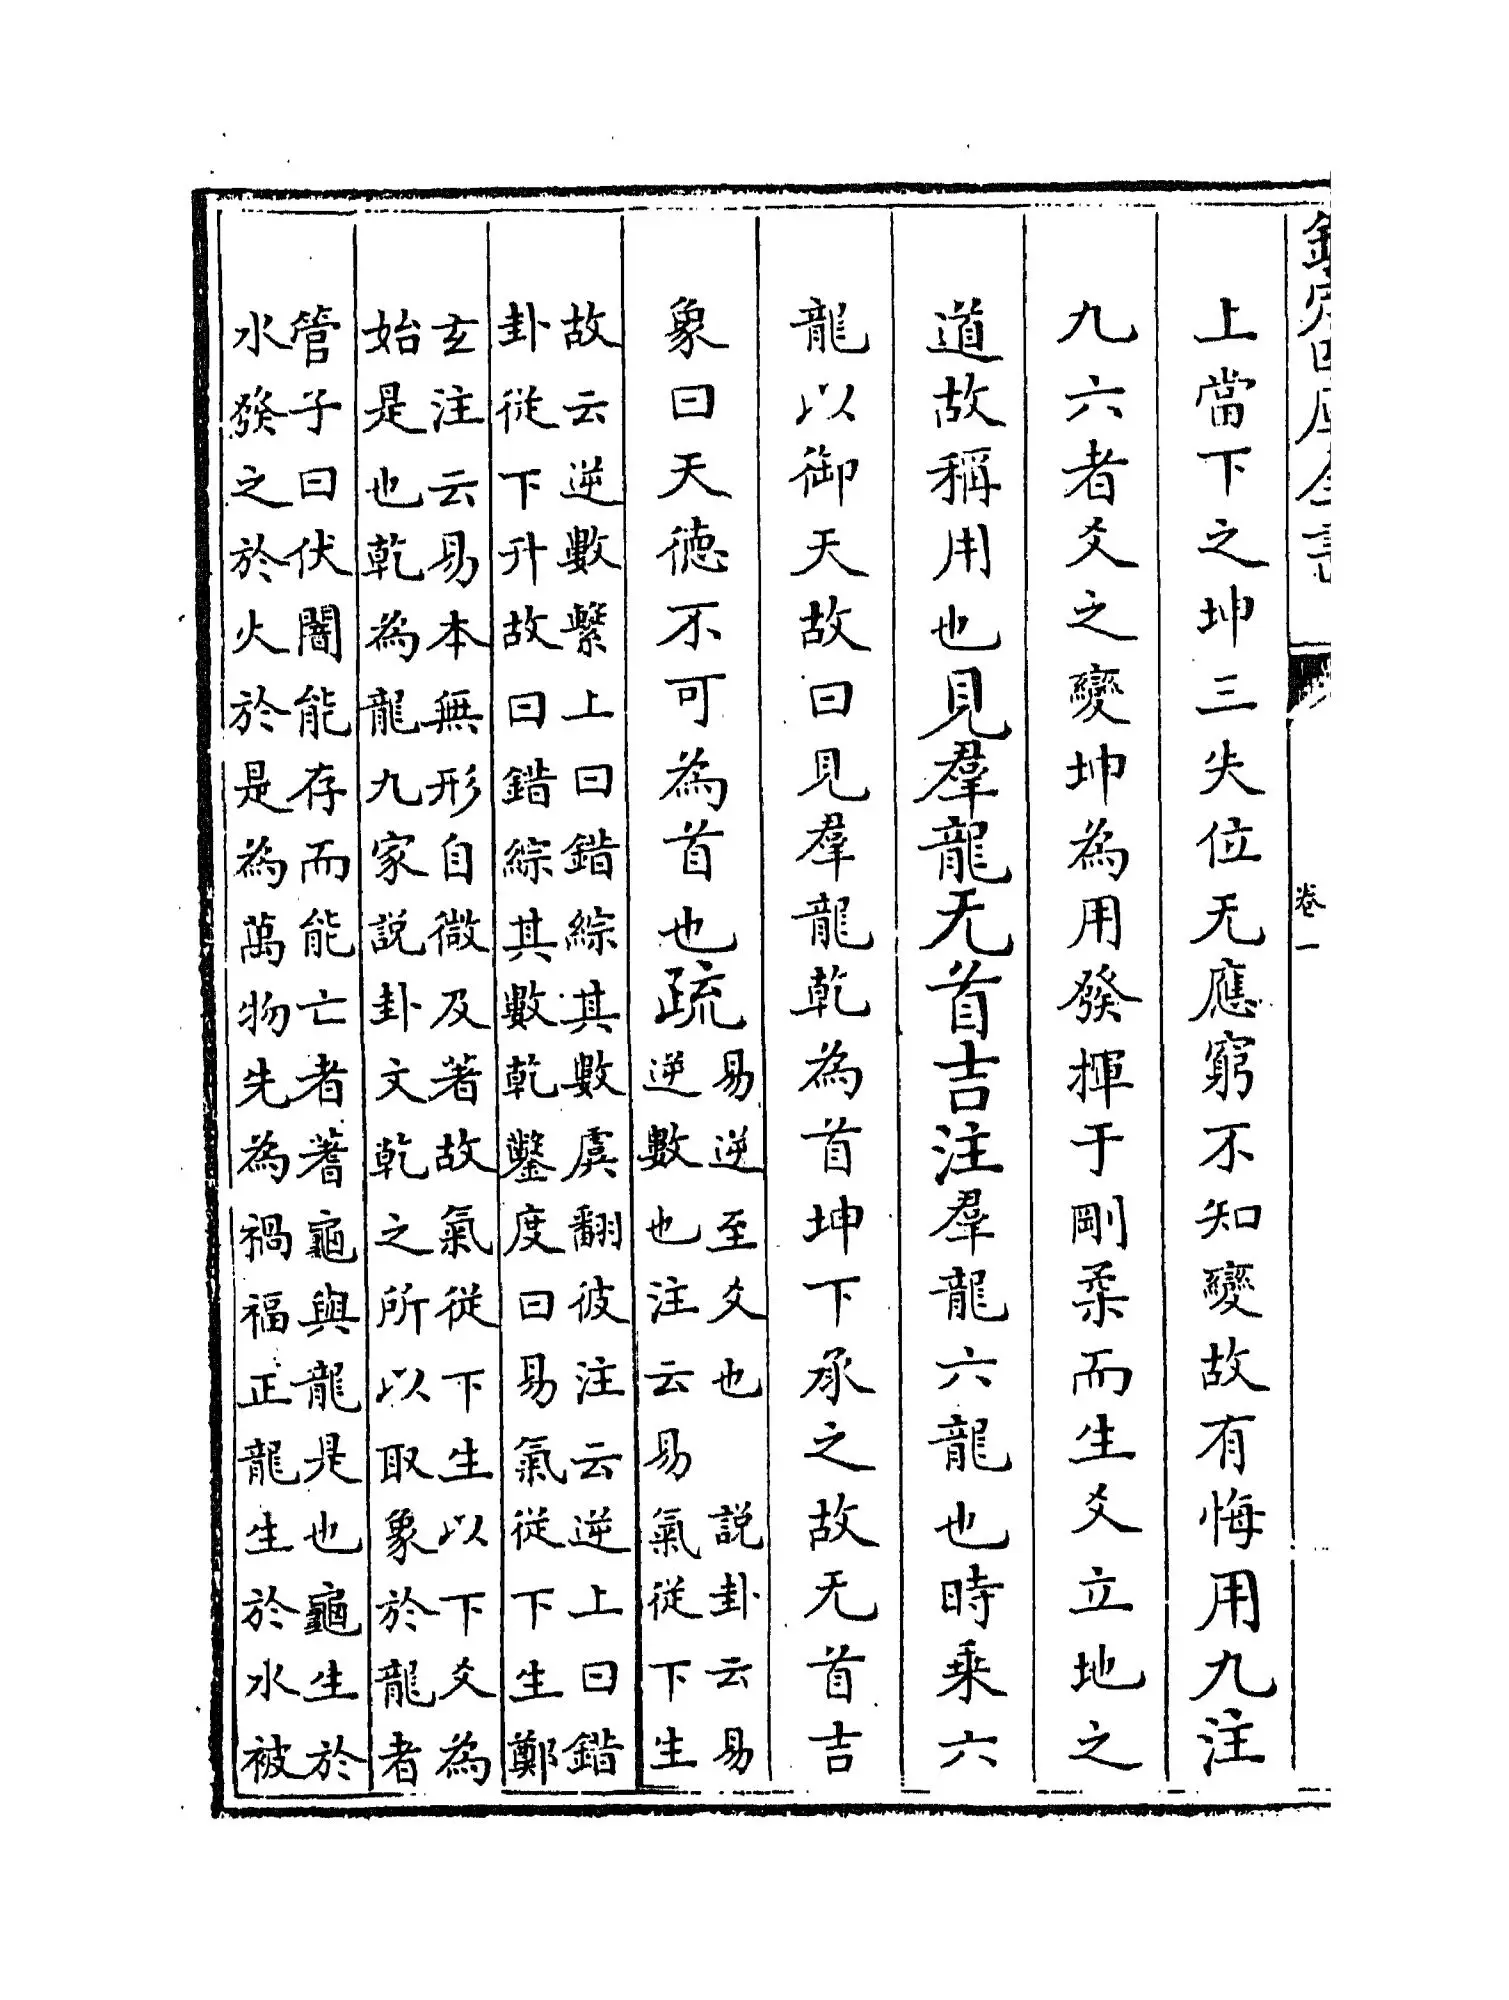 欽定四庫全書
卷一
上當下之坤三失位无應窮不知變故有悔用九注
九六者爻之變坤為用發揮于剛柔而生爻立地之
道故稱用也見羣龍无首吉注羣龍六龍也時乘六
龍以御天故曰見羣龍乾為首坤下承之故无首吉
象曰天德不可為首也疏
易逆至爻也 說卦云易
逆數也注云易氣從下生
故云逆數繫上曰錯綜其數虞翻彼注云逆上曰錯
卦從下升故曰錯綜其數乾鑿度曰易氣從下生鄭
玄注云易本無形自微及著故氣從下生以下爻為
始是也乾為龍九家說卦文乾之所以取象於龍者
管子曰伏闇能存而能亡者蓍龜與龍是也龜生於
水發之於火於是為萬物先為禍福正龍生於水被